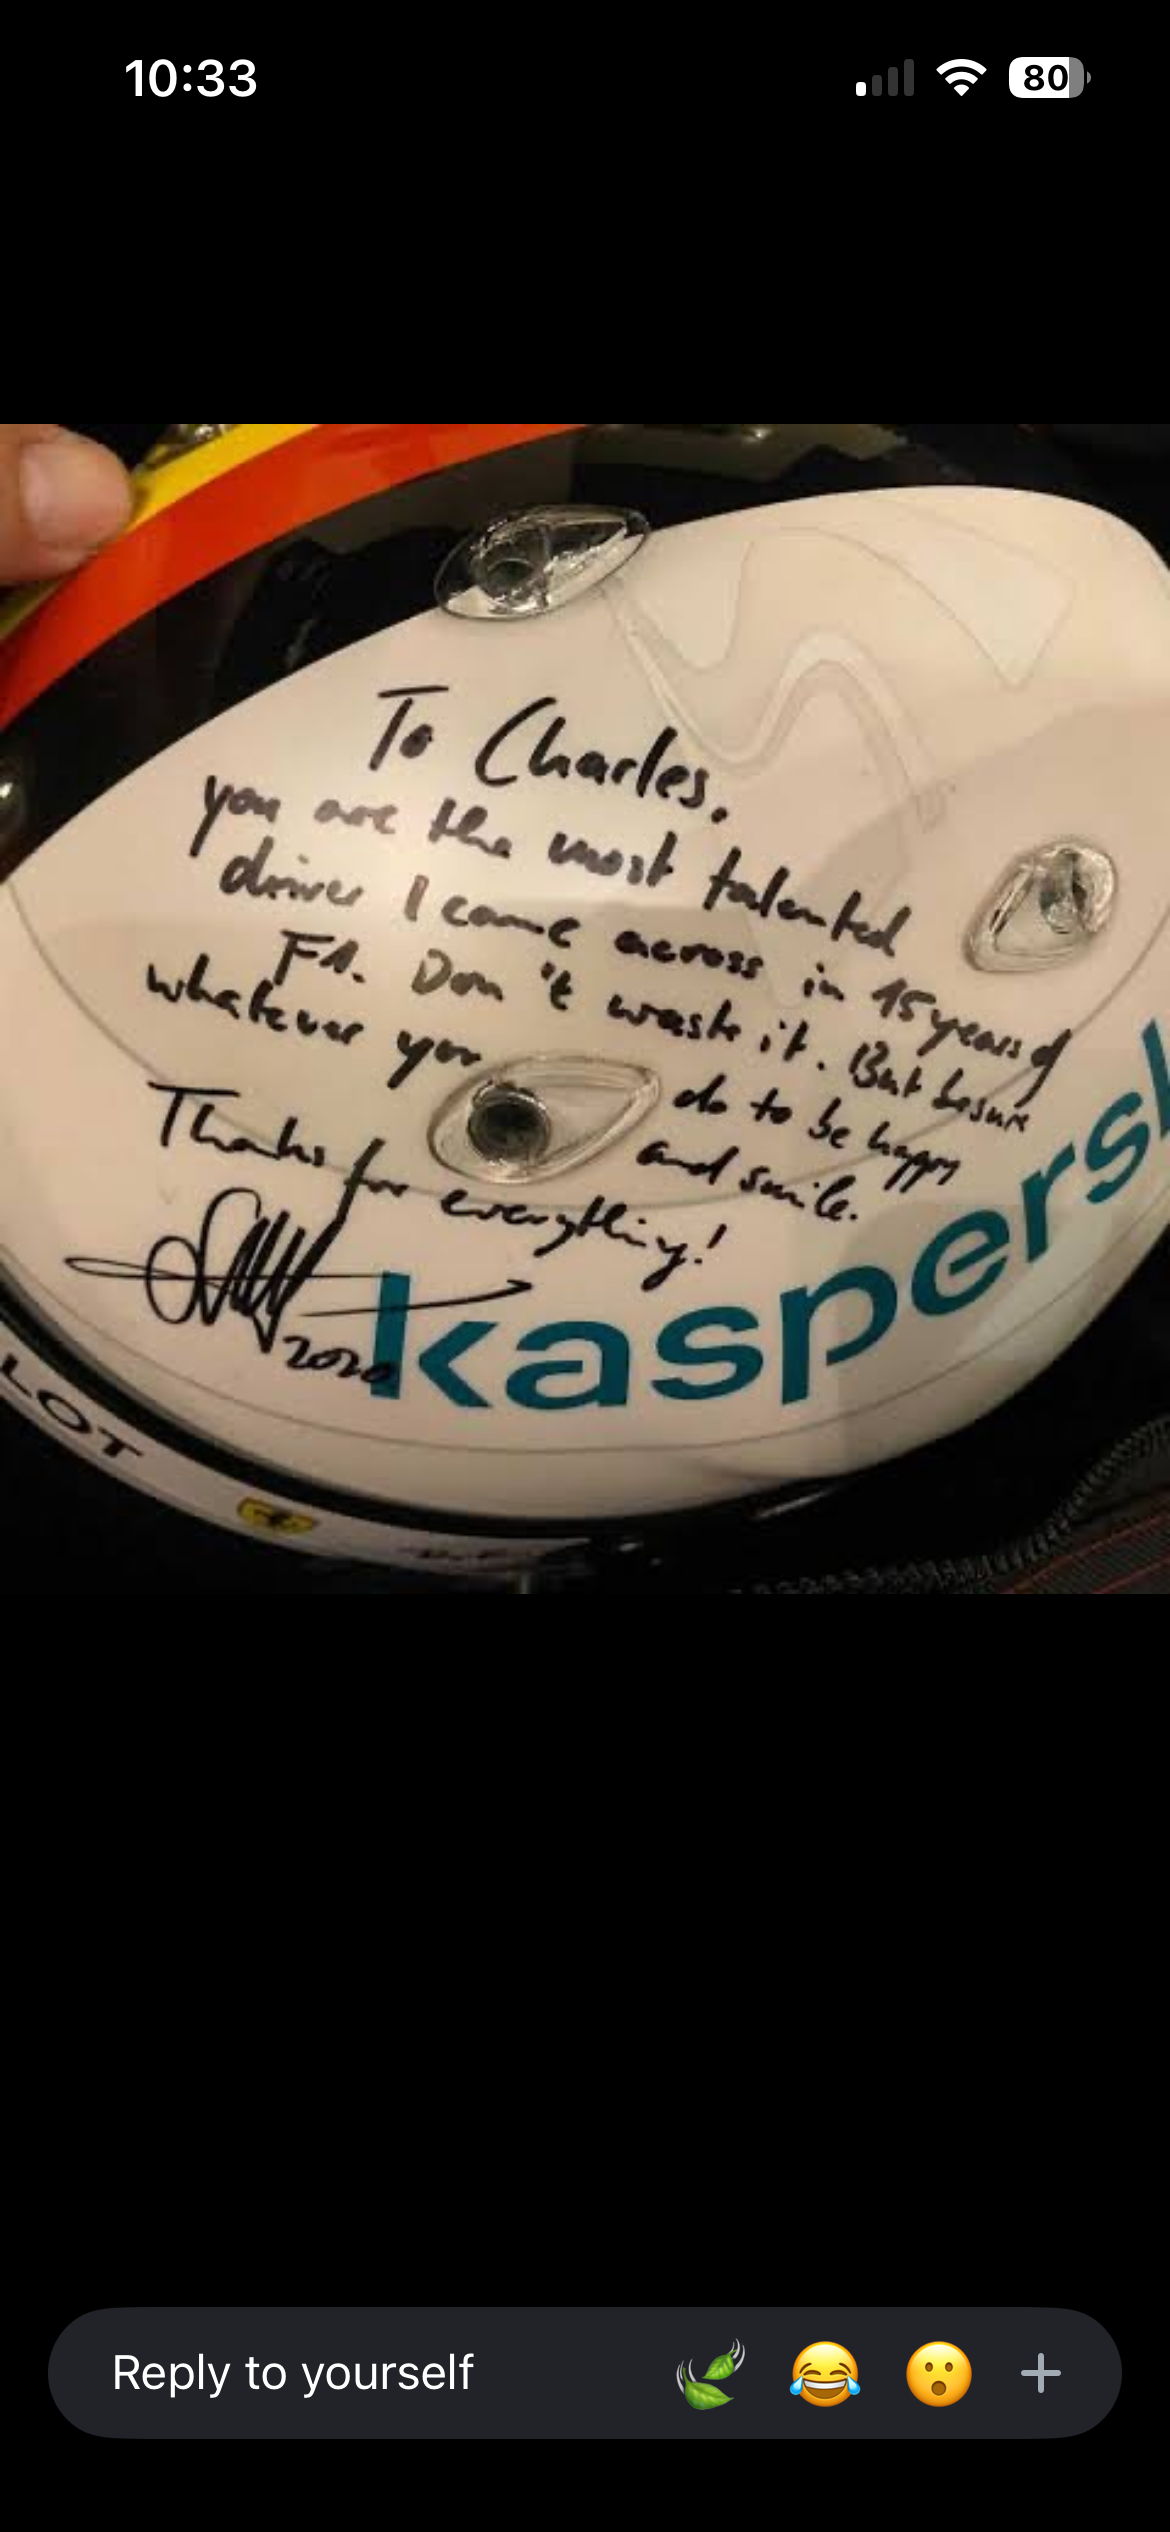 10:33
80
To Charles,
you are the most talented
driver I came across in 15 years of
F1. Don't waste it. But besure
whatever you do to be happy
and smile.
Thanks for everything!
2020
kaspersk
LOT
Reply to yourself